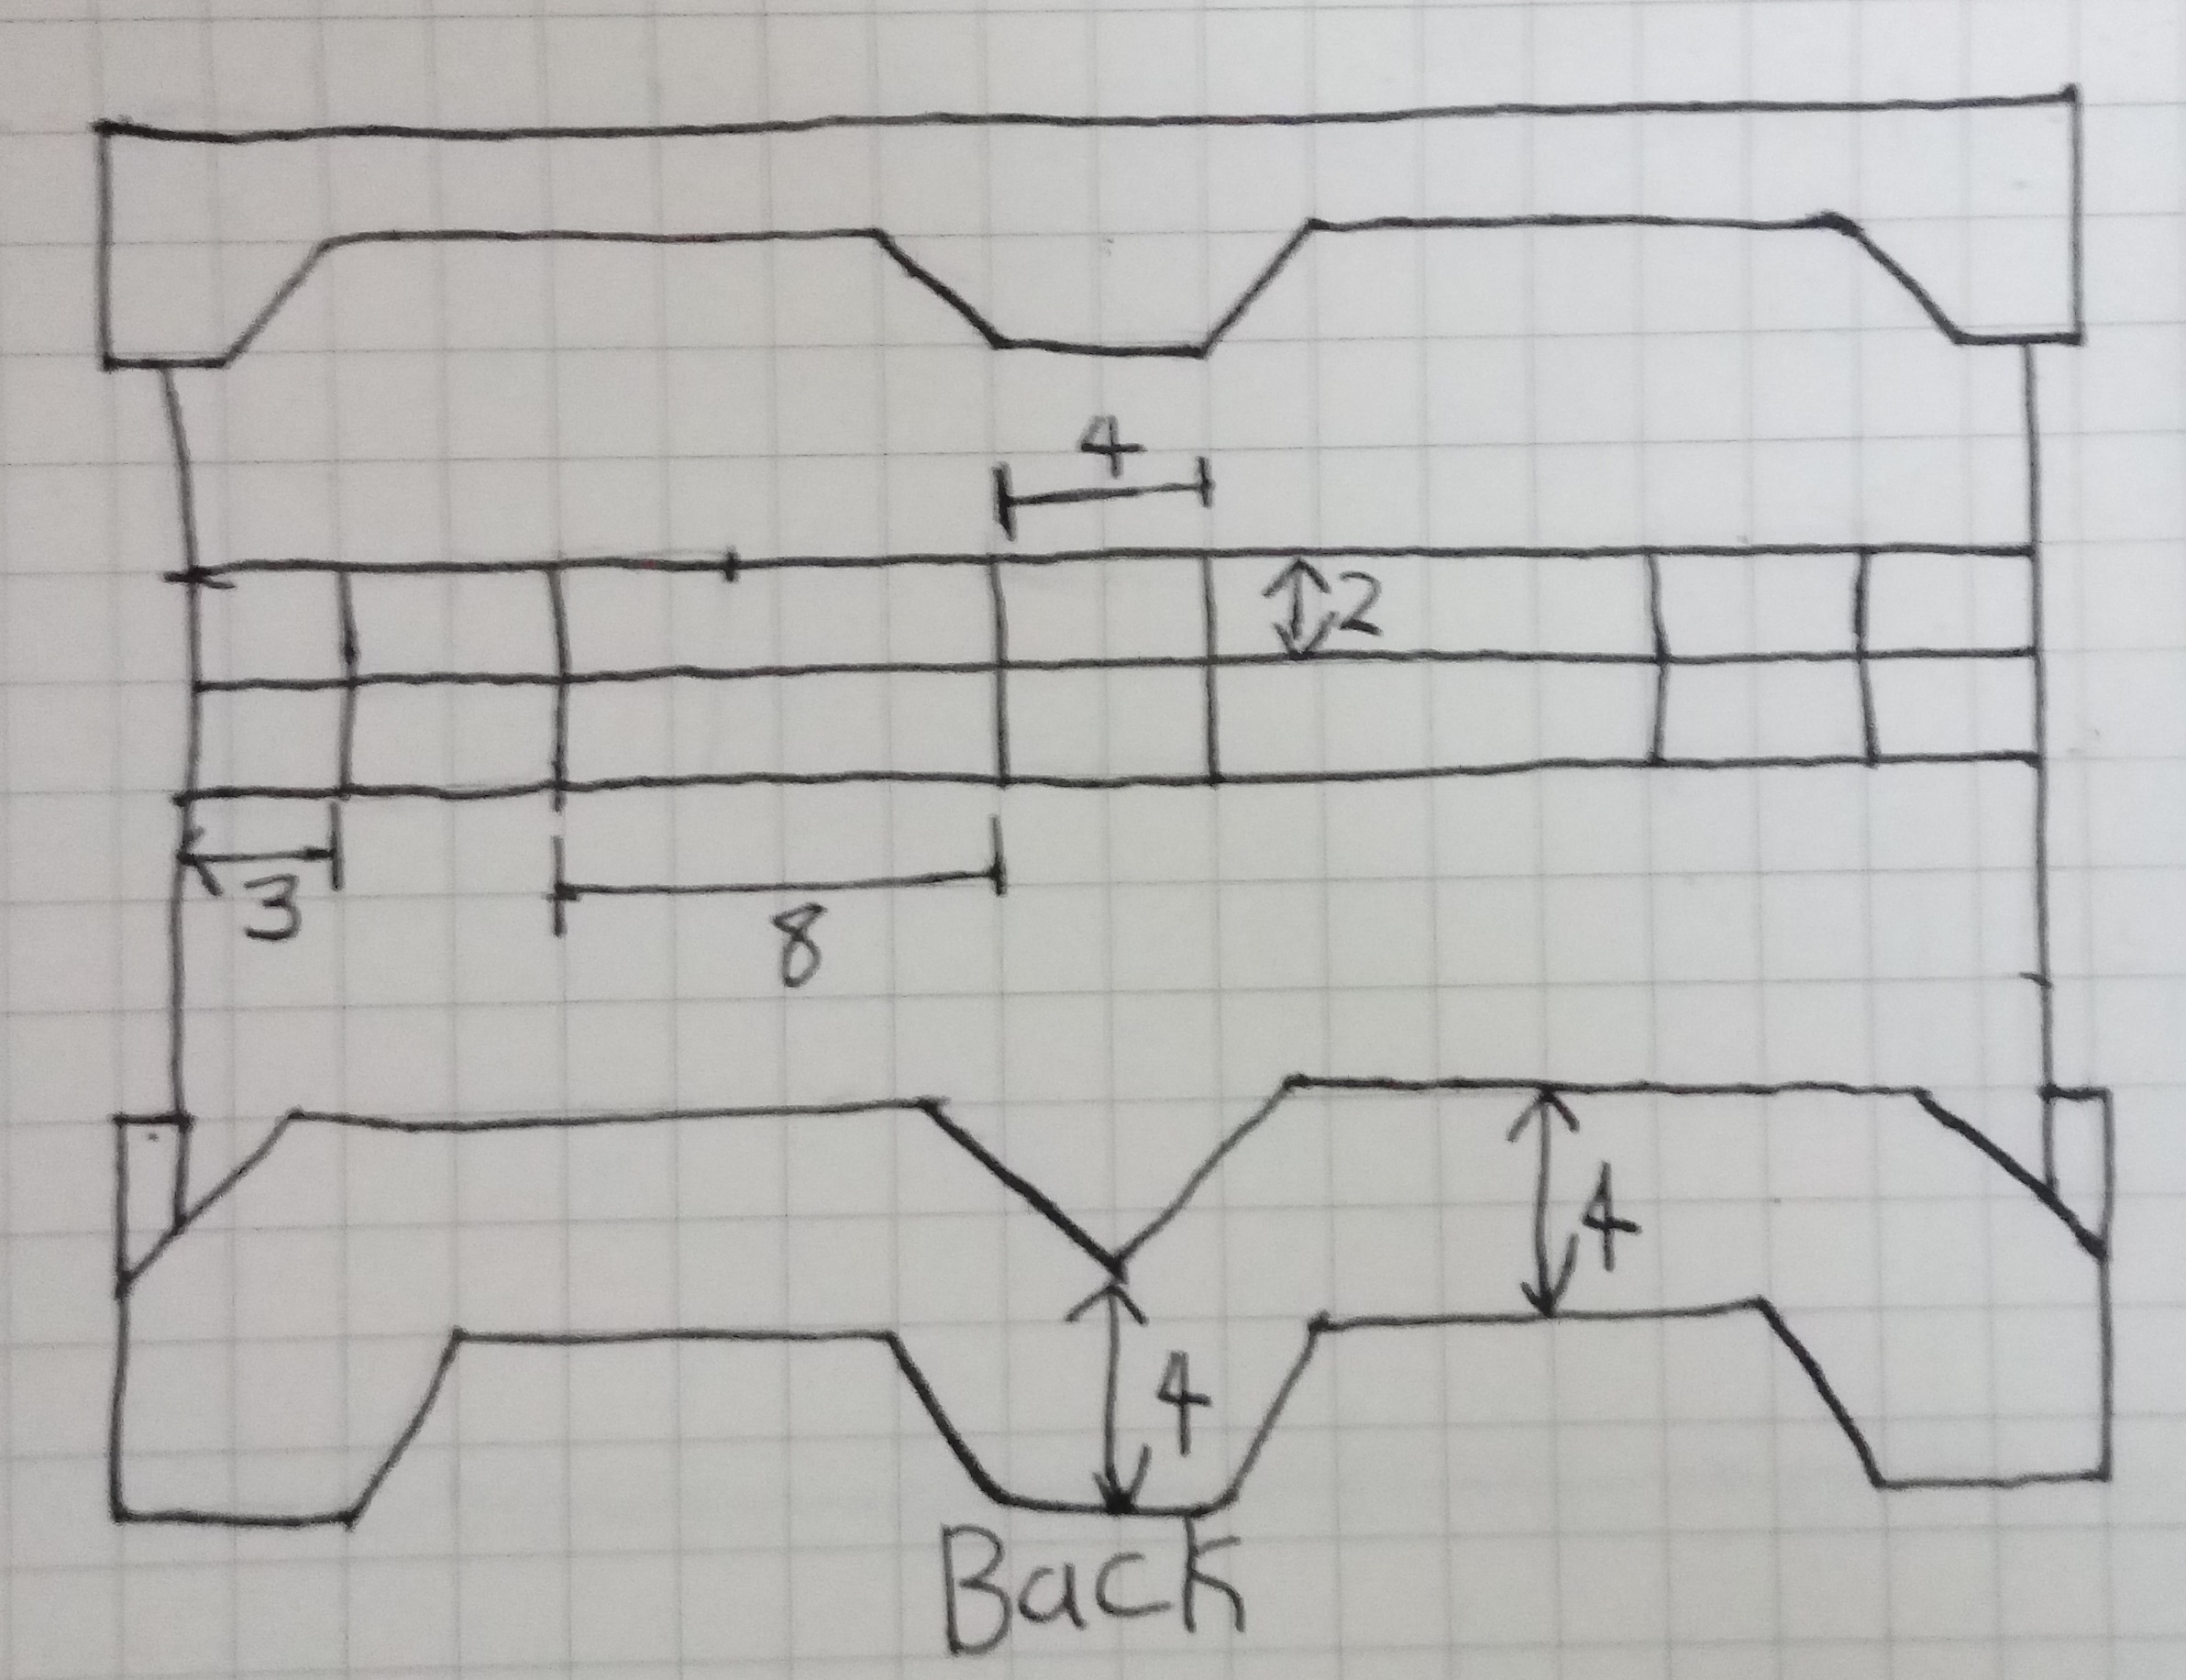 4
2
3
8
4
4
Back